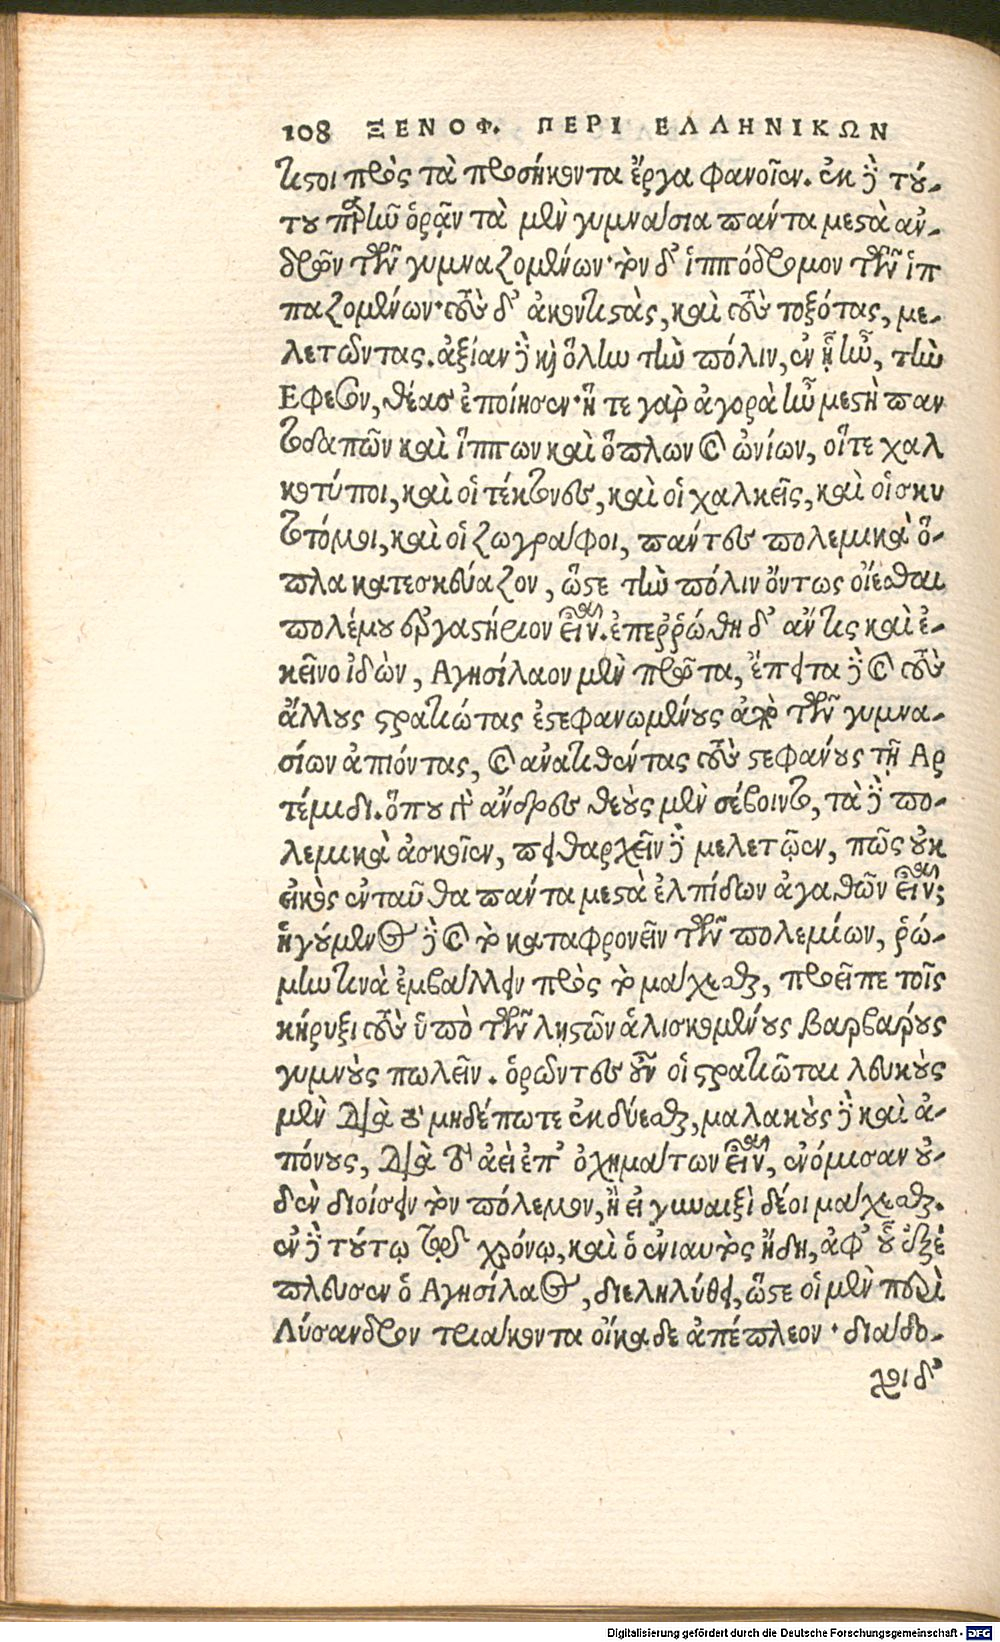 108 ΞΕΝΟΦ. ΠΕΡΙ ΕΛΛΗΝΙΚΩΝ
τιστοι πρὸς τὰ προσήκοντα ἔργα φανοῖεν. ἐκ δὲ τού-
του παρῆν ὁρᾷν τὰ μὲν γυμνάσια πάντα μεστὰ ἀν-
δρῶν τῶν γυμναζομένων· τὸν δ' ἱππόδρομον τῶν ἱπ
παζομένων· τοὺς δ' ἀκοντιστὰς, καὶ τοὺς τοξότας, με-
λετῶντας. ἀξίαν δὲ καὶ ὅλην τὴν πόλιν, ἐν ᾗ ἦν, τὴν
Εφεσον, θέας ἐποίησεν· ἥ τε γὰρ ἀγορὰ ἦν μεστὴ παν
τοδαπῶν καὶ ἵππων καὶ ὅπλων καὶ ὠνίων, οἵτε χαλ
κοτύποι, καὶ οἱ τέκτονες, καὶ οἱ χαλκεῖς, καὶ οἱ σκυ
τοτόμοι, καὶ οἱ ζωγράφοι, πάντες πολεμικὰ ὅ-
πλα κατεσκεύαζον, ὥστε τὴν πόλιν ὄντως οἴεσθαι
πολέμου ἐργαστήριον εἶναι. ἐπερρώσθη δ' ἄν τις καὶ ἐ-
κεῖνο ἰδὼν, Αγησίλαον μὲν πρῶτα, ἔπειτα δὲ καὶ τοὺς
ἄλλους στρατιώτας ἐστεφανωμένους ἀπὸ τῶν γυμνα-
σίων ἀπιόντας, καὶ ἀνατιθέντας τοὺς στεφάνους τῇ Αρ
τέμιδι. ὅπου γὰρ ἄνδρες θεοὺς μὲν σέβοιντο, τὰ δὲ πο-
λεμικὰ ἀσκοῖεν, πειθαρχεῖν δὲ μελετῷεν, πῶς οὐκ
εἰκὸς ἐνταῦθα πάντα μεστὰ ἐλπίδων ἀγαθῶν εἶναι;
ἡγούμενος δὲ καὶ τὸ καταφρονεῖν τῶν πολεμίων, ῥώ-
μην τινὰ ἐμβάλλειν πρὸς τὸ μάχεσθαι, προεῖπε τοῖς
κήρυξι τοὺς ὑπὸ τῶν λῃστῶν ἁλισκομένους βαρβάρους
γυμνοὺς πωλεῖν. ὁρῶντες οὖν οἱ στρατιῶται λευκοὺς
μὲν διὰ τὸ μηδέποτε ἐκδύεσθαι, μαλακοὺς δὲ καὶ ἀ-
πόνους, διὰ τὸ ἀεὶ ἐπ' ὀχημάτων εἶναι, ἐνόμισαν οὐ-
δὲν διοίσειν τὸν πόλεμον, ἢ εἰ γυναιξὶ δέοι μάχεσθαι.
ἐν δὲ τούτῳ τῷ χρόνῳ, καὶ ὁ ἐνιαυτὸς ἤδη, ἀφ' οὗ ἐξέ
πλευσεν ὁ Αγησίλαος, διεληλύθει, ὥστε οἱ μὲν περὶ
Λύσανδρον τριάκοντα οἴκαδε ἀπέπλεον· διάδο-
χοι δ'
Digitalisierung gefördert durch die Deutsche Forschungsgemeinschaft - DFG